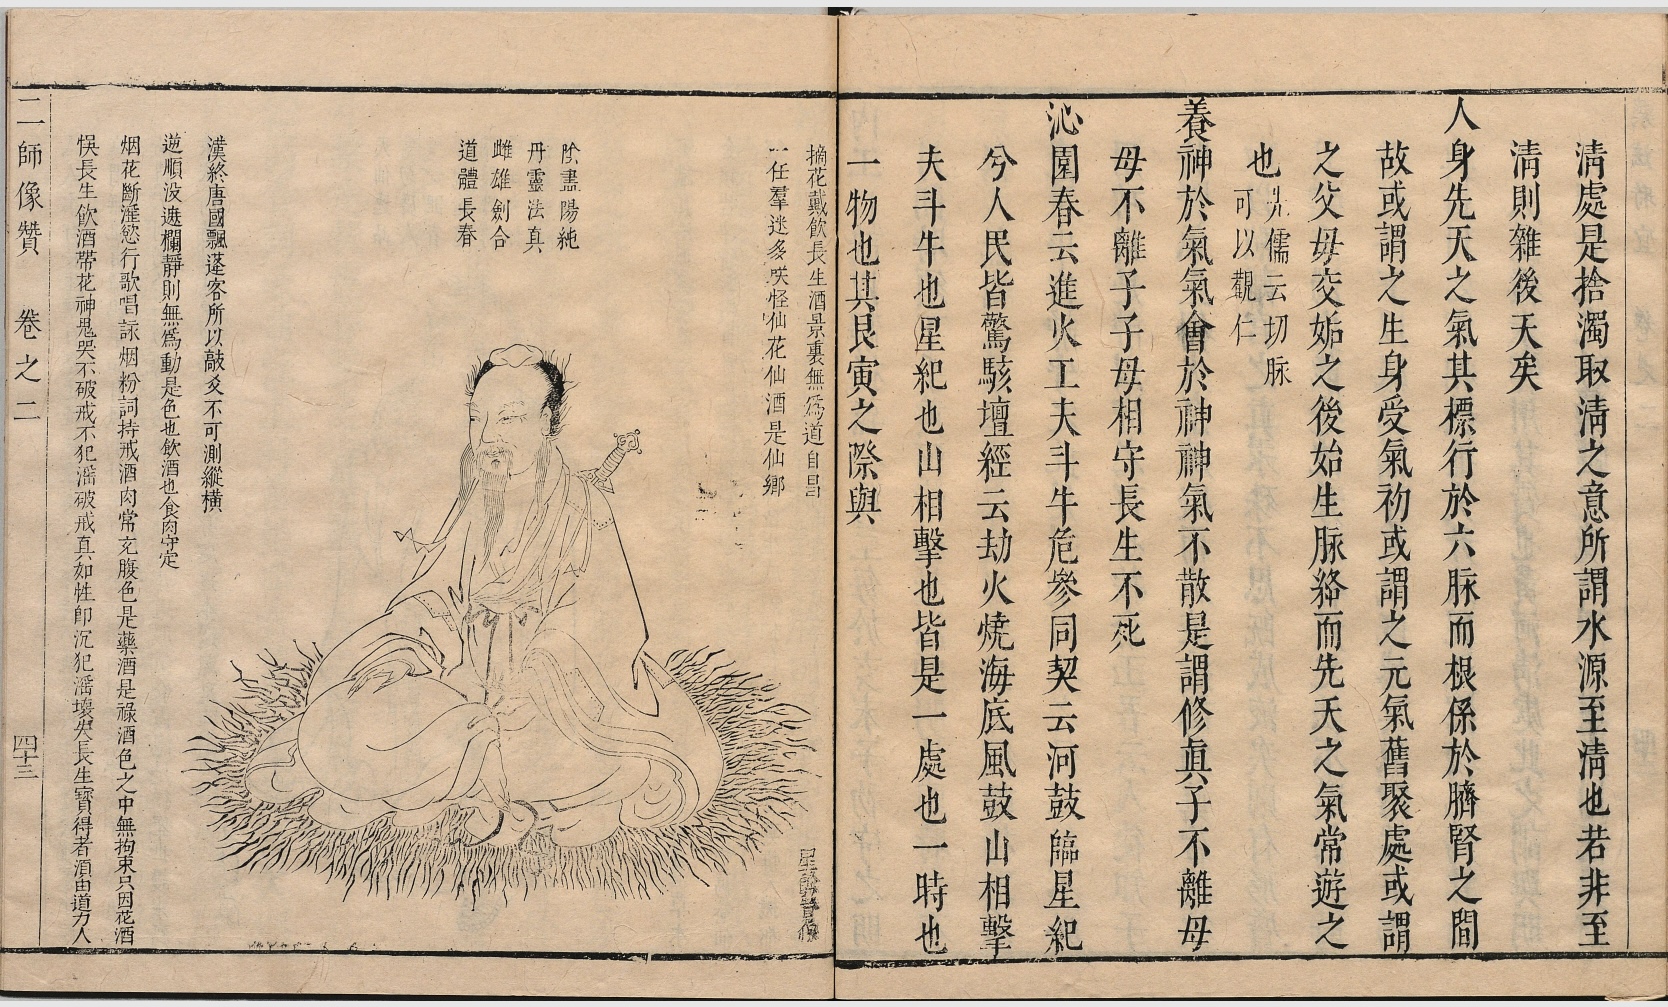 淸處是捨濁取淸之意所謂水源至淸也若非至
淸則雜後天矣
人身先天之氣其標行於六脉而根係於臍腎之間
故或謂之生身受氣初或謂之元氣舊聚處或謂
之父母交姤之後始生脉絡而先天之氣常遊之
也
先儒云切脉
可以觀仁
養神於氣氣會於神神氣不散是謂修眞子不離母
母不離子子母相守長生不死
沁園春云進火工夫斗牛危參同契云河鼓臨星紀
兮人民皆驚駭壇經云劫火燒海底風鼓山相擊
夫斗牛也星紀也山相擊也皆是一處也一時也
一物也其艮寅之際與
摘花戴飲長生酒景裏無爲道自昌
一任羣迷多咲怪仙花仙酒是仙鄉
陰盡陽純
丹靈法真
雌雄劍合
道體長春
漢終唐國飄蓬客所以敲爻不可測縱横
逆順没遮欄靜則無爲動是色也飲酒也食肉守定
烟花斷滛慾行歌唱詠烟粉詞持戒酒肉常充腹色是藥酒是祿酒色之中無拘束只因花酒
悞長生飲酒帶花神鬼哭不破戒不犯滛破戒真如性卽沉犯滛壞失長生寳得者須由道力人
二師像贊
卷之二
四十三